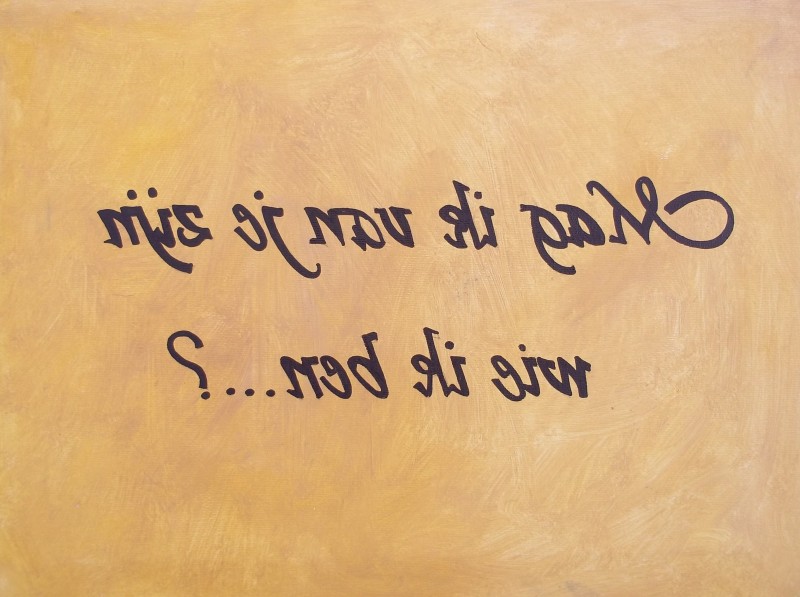 Mag ik van je zijn
wie ik ben....?